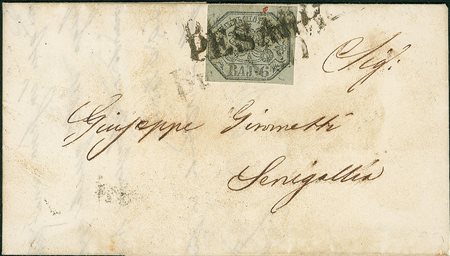 PESARO
BAJ. 6
Sig:
Giuseppe Giometti
Senigallia